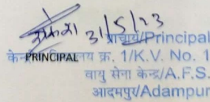 31/5/23
प्राचार्य/Principal
PRINCIPAL
क्र. 1/K.V. No. 1
वायु सेना केन्द्र/A.F.S.
आदमपुर/Adampur